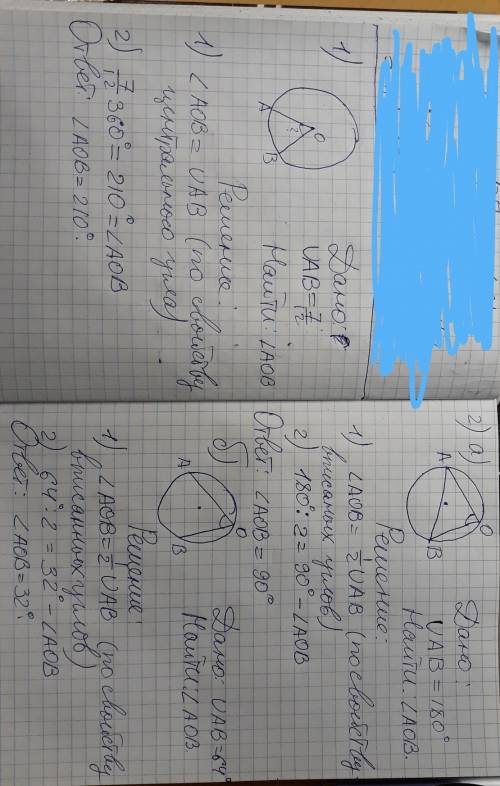 1)
O
?
A
B
Дано:
∪AB=7/12
Найти: ∠AOB
Решение:
1) ∠AOB = ∪AB (по свойству
центрального угла)
2) 7/12 360° = 210° = ∠AOB
Ответ: ∠AOB = 210°.
2) а)
A
O
B
Дано:
∪AB = 180°
Найти: ∠AOB.
Решение:
1) ∠AOB = 1/2 ∪AB (по свойству
вписаных углов)
2) 180° : 2 = 90° - ∠AOB
Ответ: ∠AOB = 90°
б)
A
O
B
Дано: ∪AB=64°
Найти: ∠AOB.
Решение:
1) ∠AOB = 1/2 ∪AB (по свойству
вписанных углов)
2) 64° : 2 = 32° - ∠AOB
Ответ: ∠AOB = 32°.